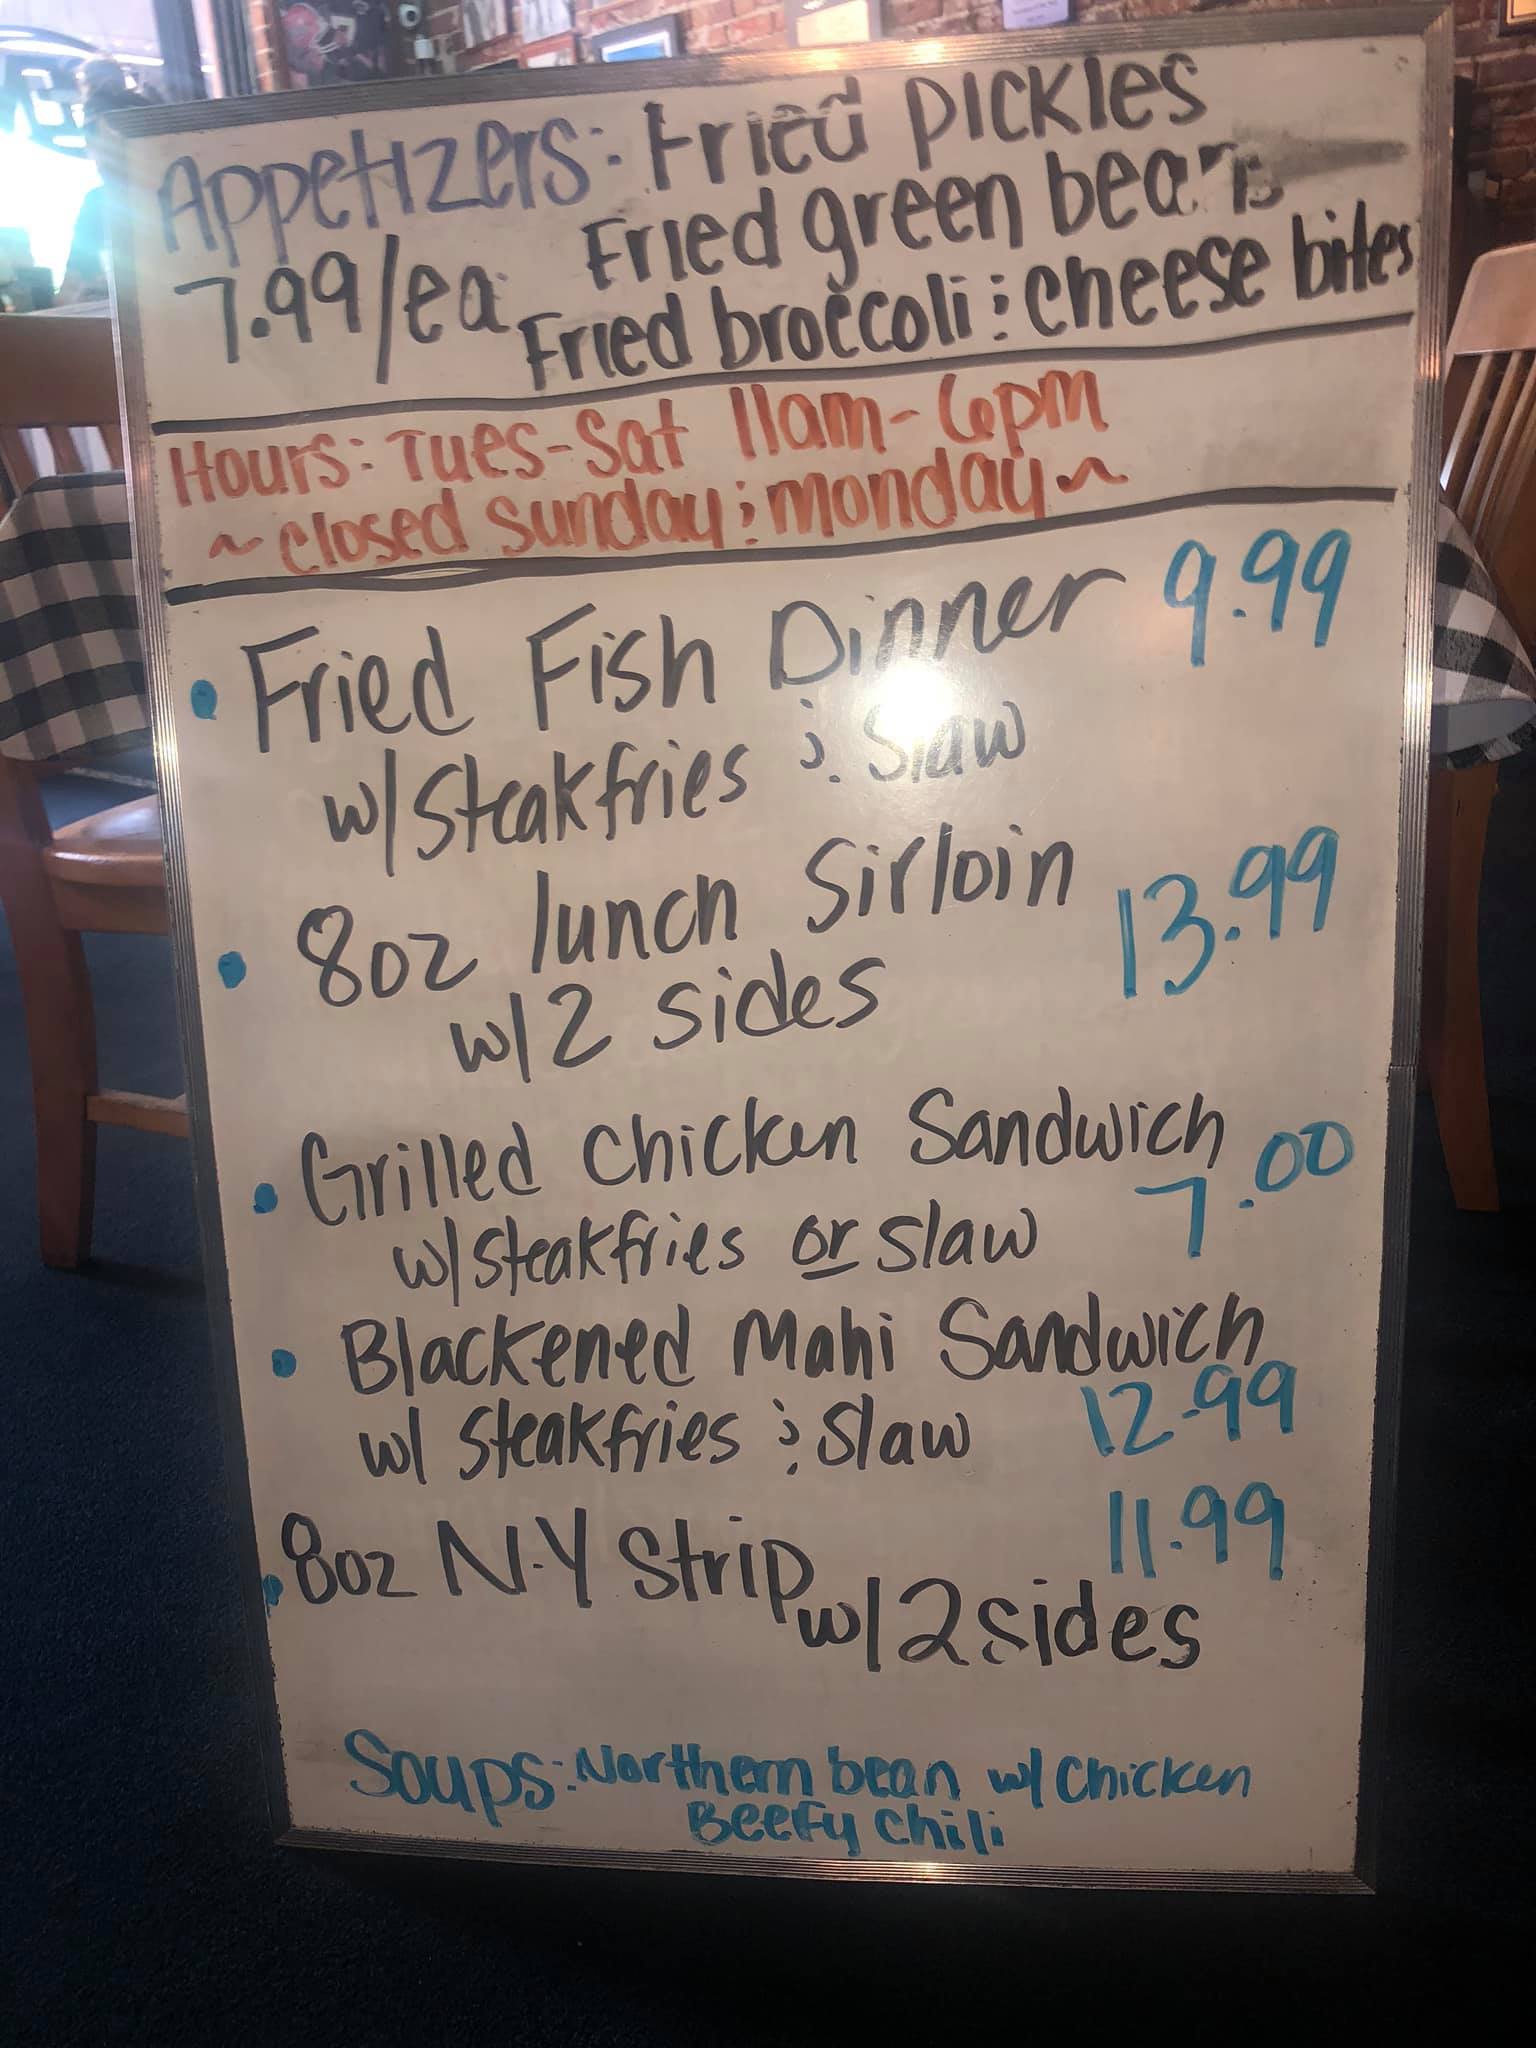 Appetizers: Fried pickles
7.99/ea. Fried green beans
Fried broccoli & cheese bites
Hours: Tues-Sat 11am-6pm
~closed Sunday & monday~
• Fried Fish Dinner 9.99
w/steakfries & slaw
• 8oz lunch Sirloin 13.99
w/2 sides
• Grilled chicken Sandwich 7.00
w/steakfries or slaw
• Blackened Mahi Sandwich
w/ steakfries & slaw 12.99
• 8oz N.Y Strip 11.99
w/2sides
Soups: Northern bean w/ chicken
Beefy chili